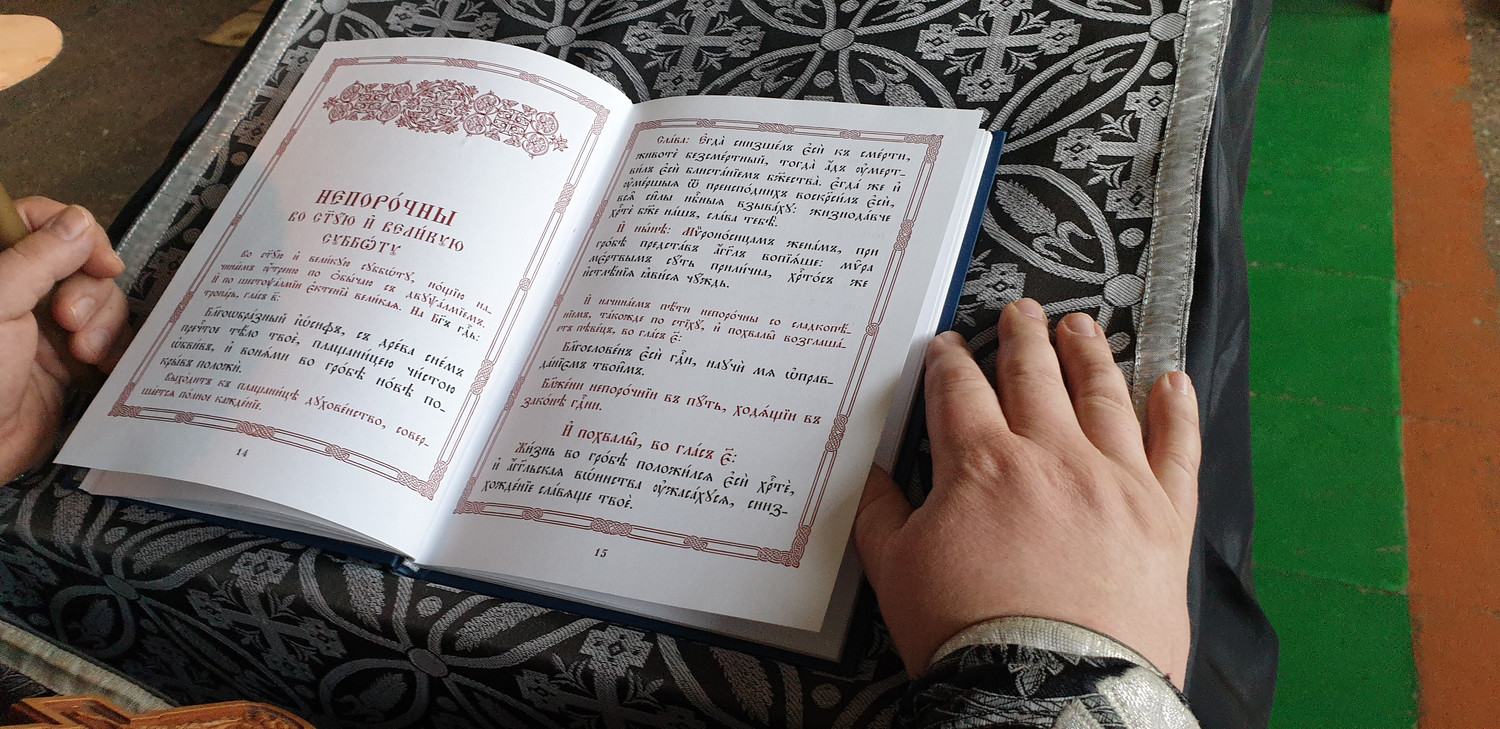 НЕПОРО́ЧНЫ
ВО СТ҃У́Ю И҆ ВЕЛИ́КУЮ
СУББѠ́ТУ
Во ст҃у́ю и҆ вели́кую суббѡ́ту, но́щїю на-
чина́емъ ᲂу҆́треню по ѻ҆бы́чаю съ двупсалмїемъ.
И҆ по шестоѱа́лмїи є҆ктенїа̀ вели́каѧ. На бг҃ъ гдⷭ҇ь:
тропа́рь, гла́съ в҃:
Бл҃гоѡбра́зный і҆ѡ́сифъ, съ дре́ва сне́мъ
пречⷭ҇тое тѣ́ло твоѐ, плащани́цею чи́стою
ѡ҆бви́въ, и҆ вонѧ́ми во гро́бѣ но́вѣ по-
кры́въ положѝ.
Выхо́дитъ къ плащани́цѣ дꙋхове́нство, совер-
ша́етсѧ по́лное кажде́нїе.
14
Сла́ва: Є҆гда̀ снизше́лъ є҆сѝ къ сме́рти,
животѐ безсме́ртный, тогда̀ а҆́дъ ᲂу҆мерт-
ви́лъ є҆сѝ блиста́нїемъ бжⷭ҇тва̀. Є҆гда́ же и҆
ᲂу҆ме́ршыѧ ѿ преиспо́днихъ воскреси́лъ є҆сѝ,
всѧ̑ си̑лы нбⷭ҇ныѧ взыва́хꙋ: жизнода́вче
хрⷭ҇тѐ бж҃е на́шъ, сла́ва тебѣ̀.
И҆ ны́нѣ: Мѵроно́сицамъ жена́мъ, при
гро́бѣ предста́въ а҆́гг҃лъ вопїѧ́ше: мѵ̑ра
мє́ртвымъ сꙋ́ть прили̑чна, хрⷭ҇то́съ же
и҆стлѣ́нїѧ ꙗ҆ви́сѧ чꙋ́ждь.
И҆ начина́емъ пѣ́ти непоро́чны со сладкопѣ́-
нїемъ, та́кожде по стїхꙋ̀, и҆ похвалы̑ возглаша́-
етъ пѣве́цъ, во гла́съ є҃:
Бл҃гослове́нъ є҆сѝ гдⷭ҇и, наꙋчи́ мѧ ѡ҆прав-
да́нїємъ твои̑мъ.
Бл҃же́ни непоро́чнїи въ пꙋ́ть, ходѧ́щїи въ
зако́нѣ гдⷭ҇ни.
И҆ похвалы̑, во гла́съ є҃:
Жи́знь во гро́бѣ положи́лсѧ є҆сѝ хрⷭ҇тѐ,
и҆ а҆́гг҃льскаѧ вѡ́инства ᲂу҆жаса́хꙋсѧ, сниз-
хожде́нїе сла́вѧще твоѐ.
15